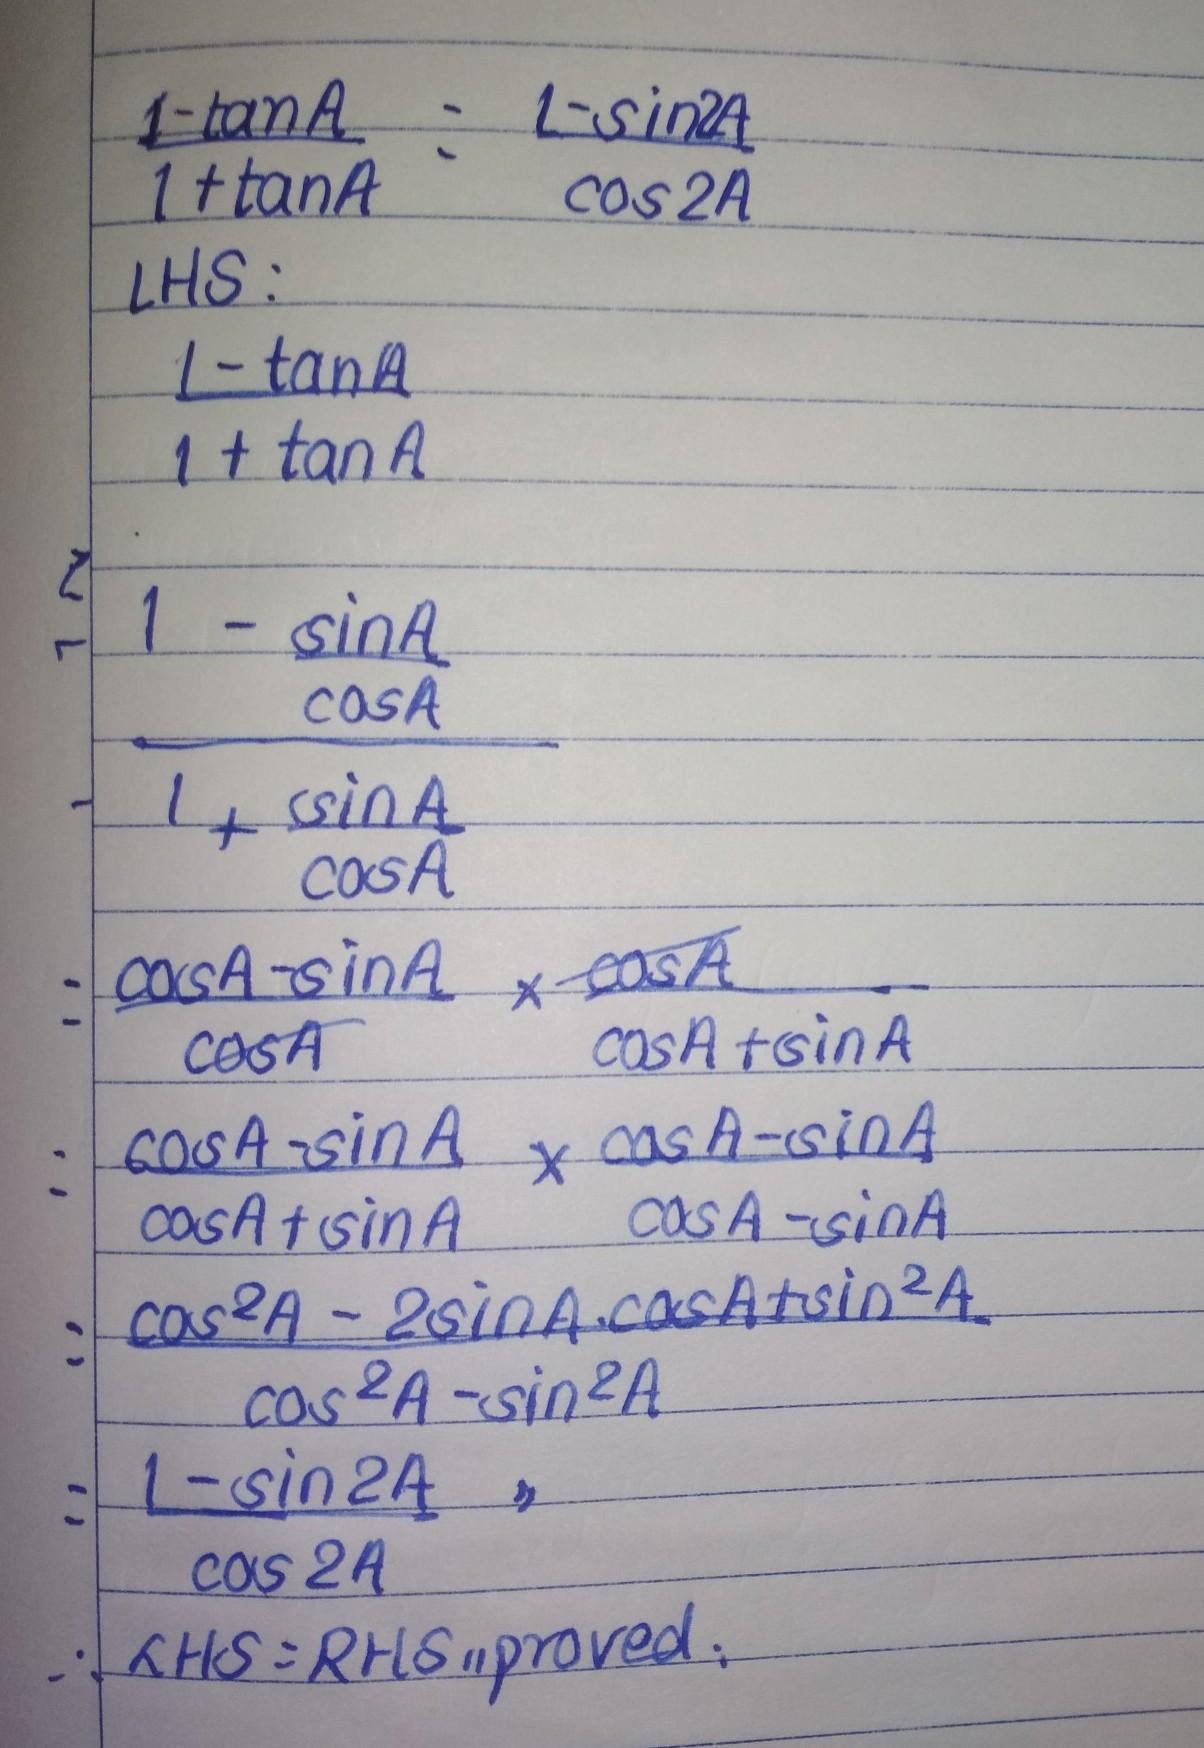 1-tanA = 1-sin2A
1+tanA cos2A
LHS:
1-tanA
1+tanA
1 - sinA
cosA
1 + sinA
cosA
= cosA-sinA × cosA
cosA cosA+sinA
= cosA-sinA × cosA-sinA
cosA+sinA cosA-sinA
= cos²A - 2sinA.cosA+sin²A
cos²A-sin²A
= 1-sin2A "
cos2A
∴ LHS=RHS,, proved.